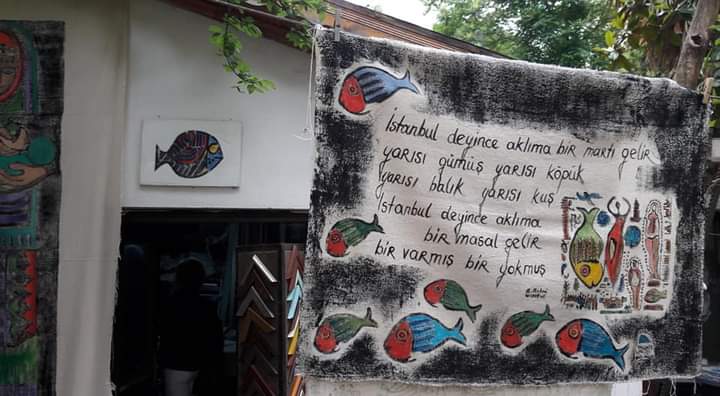 İstanbul deyince aklıma bir martı gelir
yarısı gümüş yarısı köpük
yarısı balık yarısı kuş
İstanbul deyince aklıma
bir masal gelir
bir varmış bir yokmuş